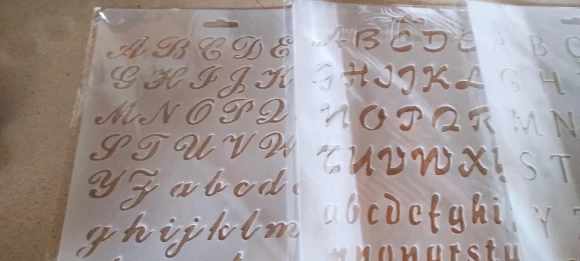 A B C D E
G H I J K
M N O P Q
S T U V W
Y Z a b c d
g h i j k l m
A B C D E
G H I J K L
N O P Q R
T U V W X
a b c d e f g h i
n n o p q r s t u
A B C
G H
M N
S T
Y